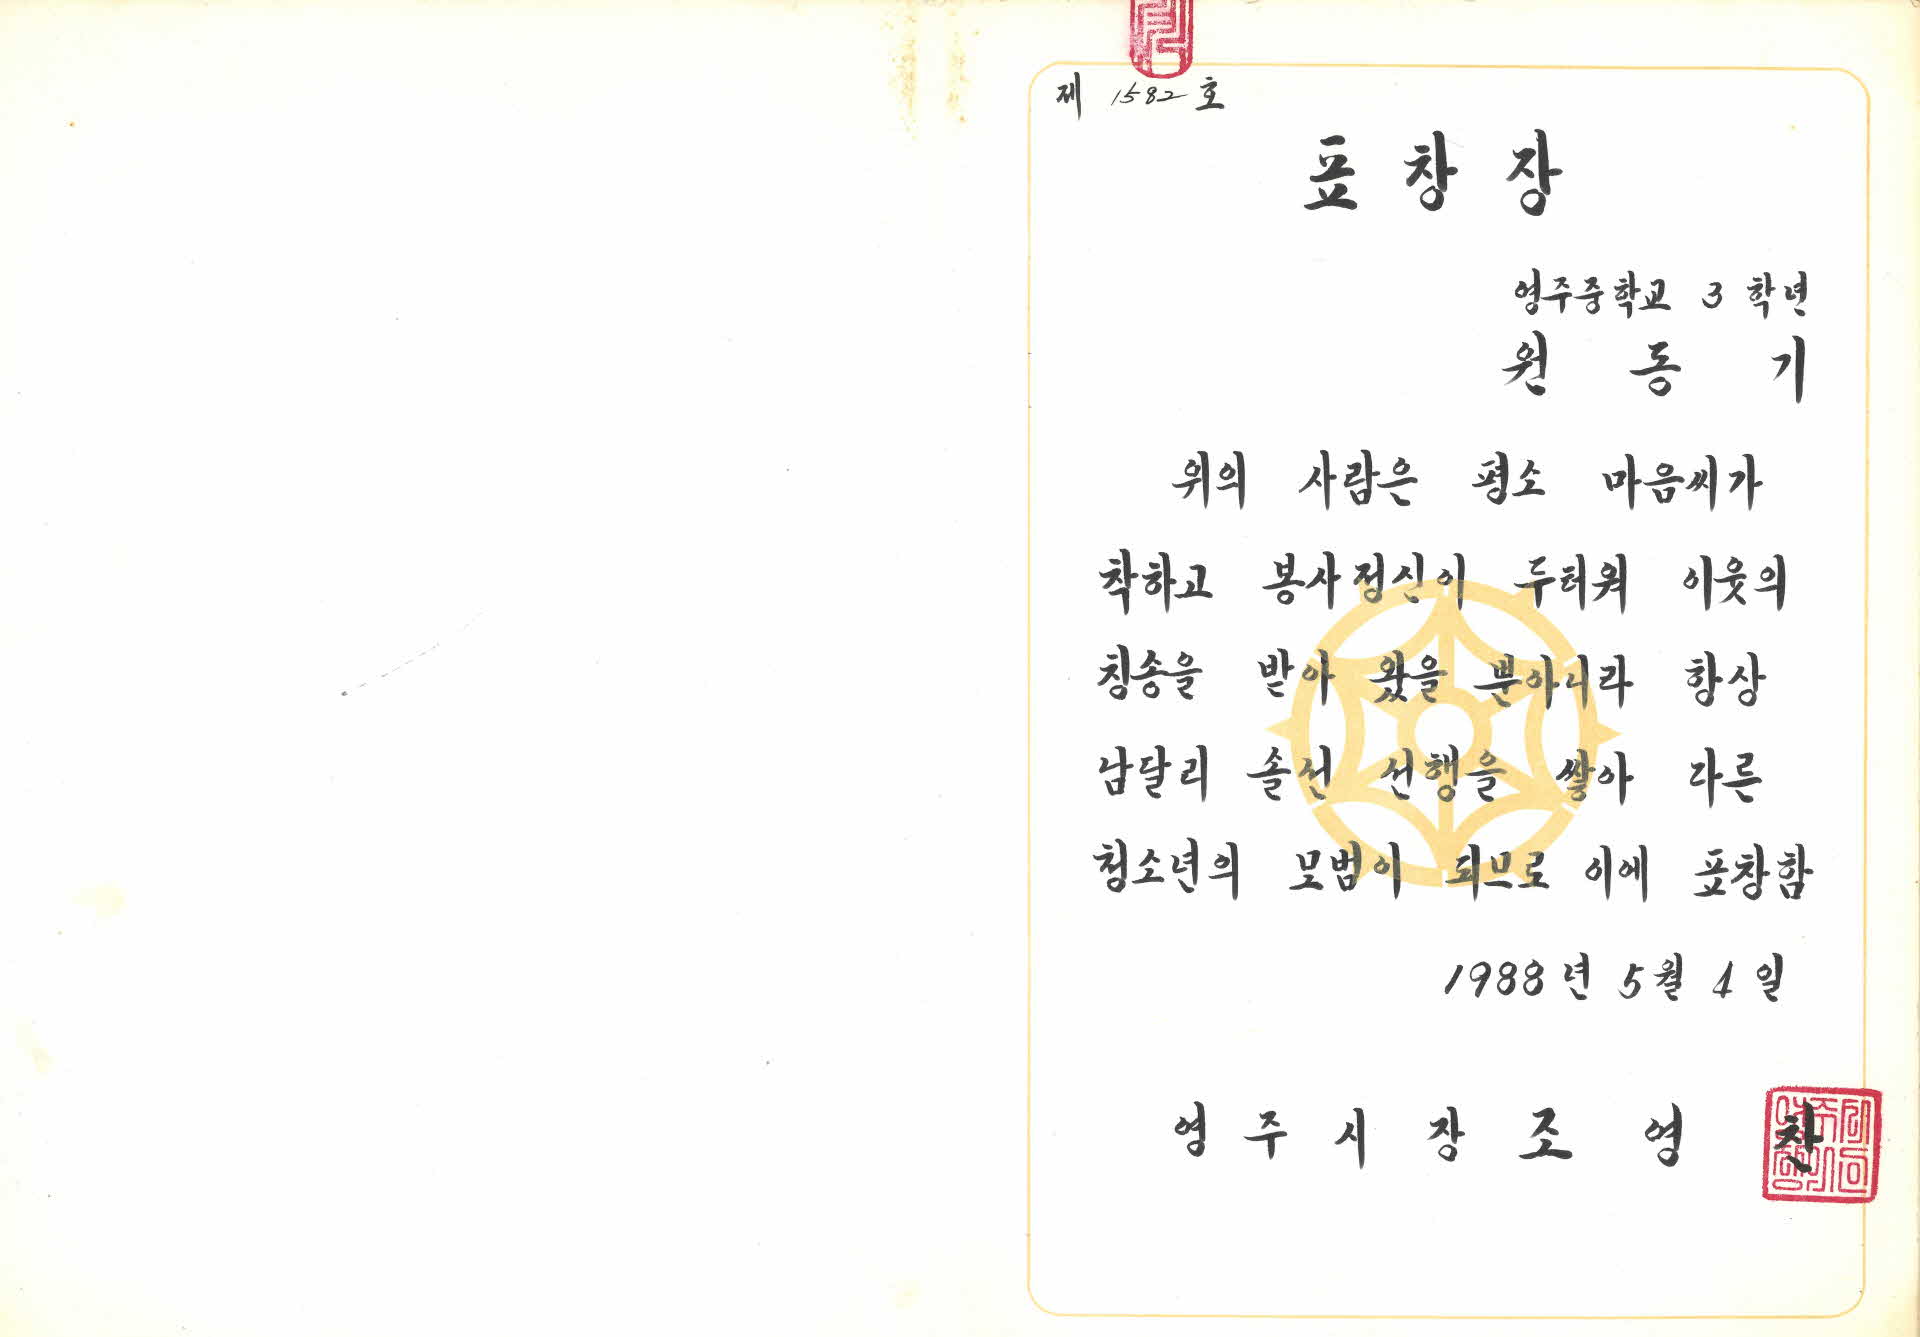 제 1582 호
표창장
영주중학교 3 학년
원 동 기
위의 사람은 평소 마음씨가
착하고 봉사정신이 두터워 이웃의
칭송을 받아 왔을 뿐아니라 항상
남달리 솔선 선행을 쌓아 다른
청소년의 모범이 되므로 이에 표창함
1988년 5월 4일
영 주 시 장 조 영 찬